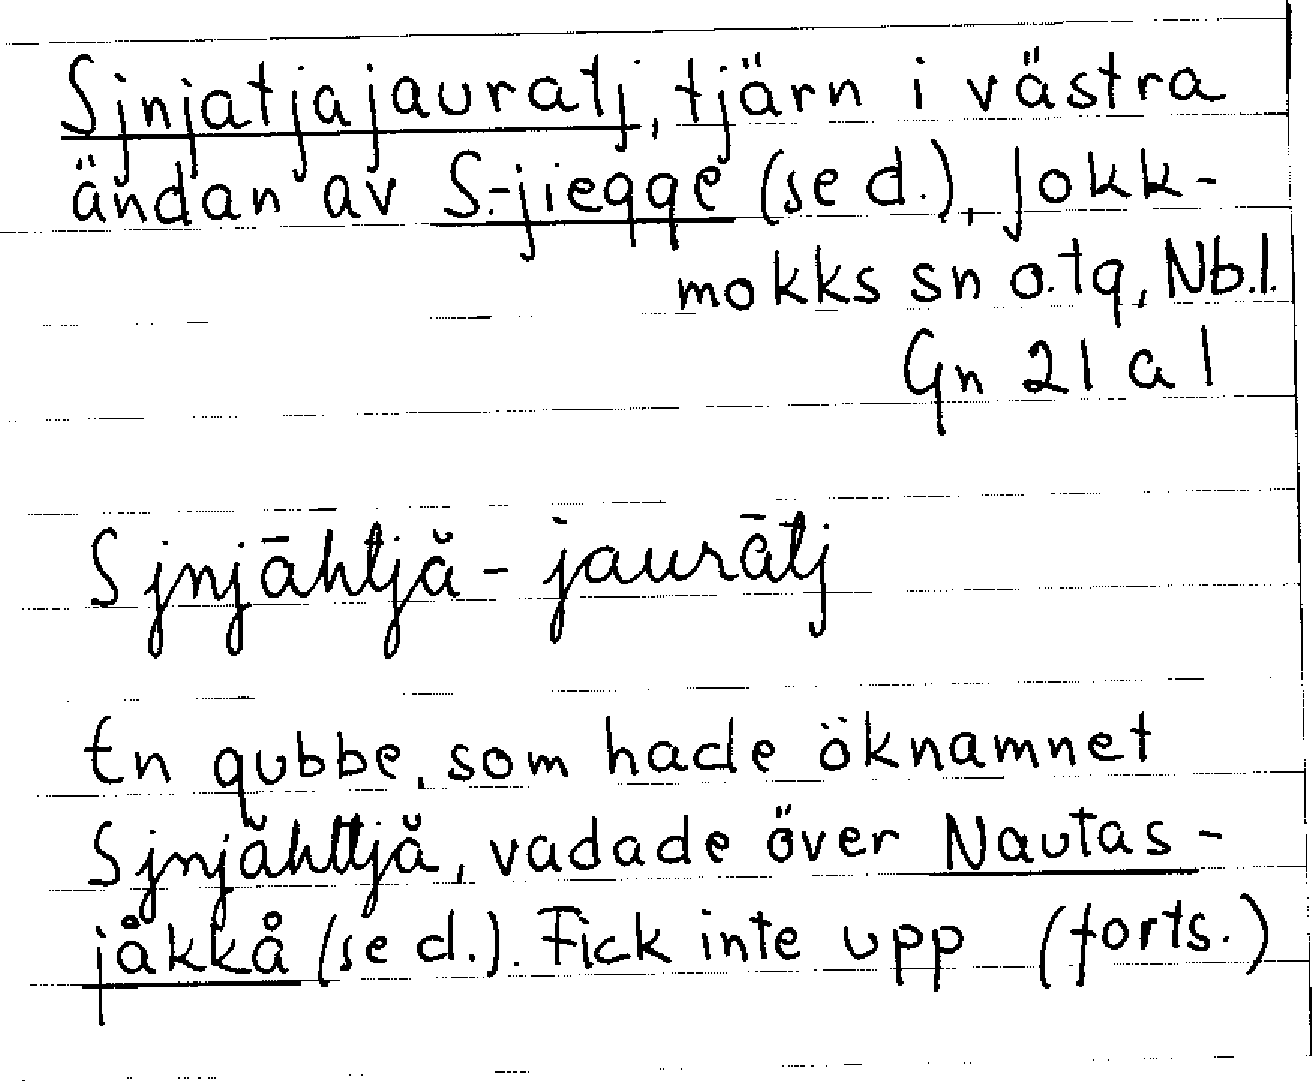 Sjnjatjajauratj, tjärn i västra
ändan av S.-jiegge (se d.), Jokk-
mokks sn o. tg, Nb. l.
Gn 21 a 1
Sjnjāhtjă-jaurātj
En gubbe, som hade öknamnet
Sjnjăhttjă, vadade över Nautas-
jåkkå (se d.). Fick inte upp (forts.)